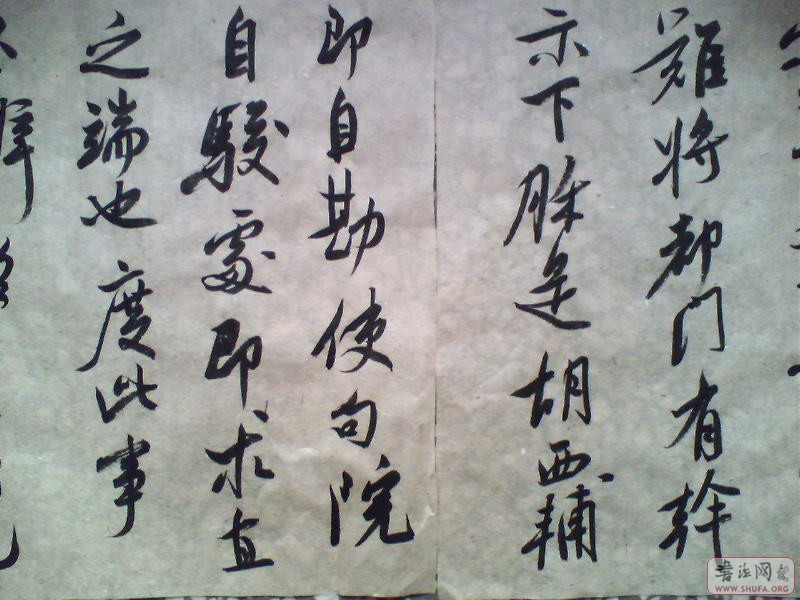 難将都门有幹
示下脉是胡西輔
即自勘使句院
自駮處即求直
之端也度此事
書法网
WWW.SHUFA.ORG